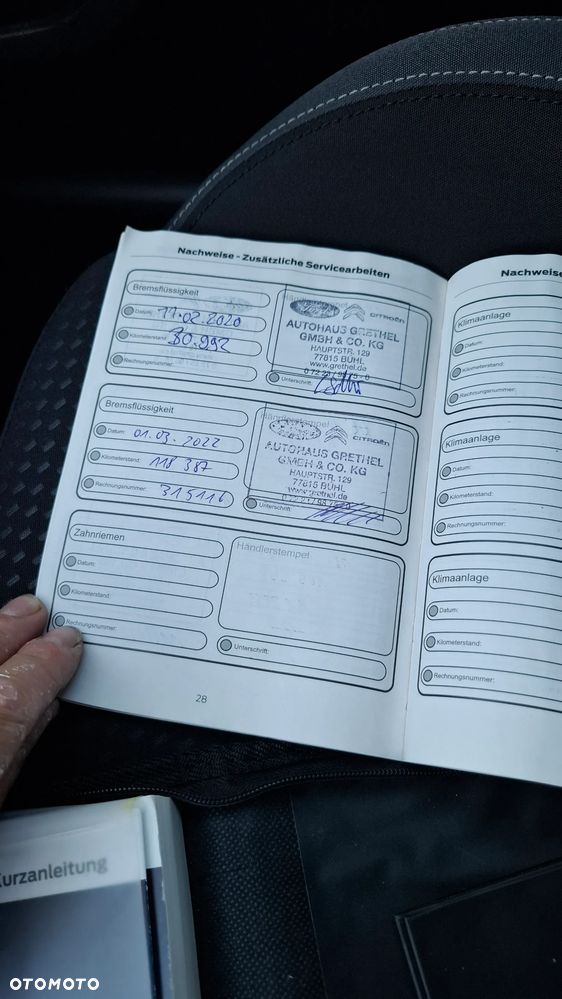 Nachweise - Zusätzliche Servicearbeiten
Bremsflüssigkeit
Datum: 11.02.2020
Kilometerstand: 80.992
Rechnungsnummer:
Händlerstempel
Ford CITROËN
AUTOHAUS GRETHEL
GMBH & CO. KG
HAUPTSTR. 129
77815 BÜHL
www.grethel.de
Unterschrift:
Bremsflüssigkeit
Datum: 01.03.2022
Kilometerstand: 118 387
Rechnungsnummer: 315116
Händlerstempel
CITROËN
AUTOHAUS GRETHEL
GMBH & CO. KG
HAUPTSTR. 129
77815 BÜHL
www.grethel.de
Unterschrift:
Zahnriemen
Datum:
Kilometerstand:
Rechnungsnummer:
Händlerstempel
Unterschrift:
28
Nachweise
Klimaanlage
Datum:
Kilometerstand:
Rechnungsnummer:
Klimaanlage
Datum:
Kilometerstand:
Rechnungsnummer:
Klimaanlage
Datum:
Kilometerstand:
Rechnungsnummer:
Kurzanleitung
OTOMOTO